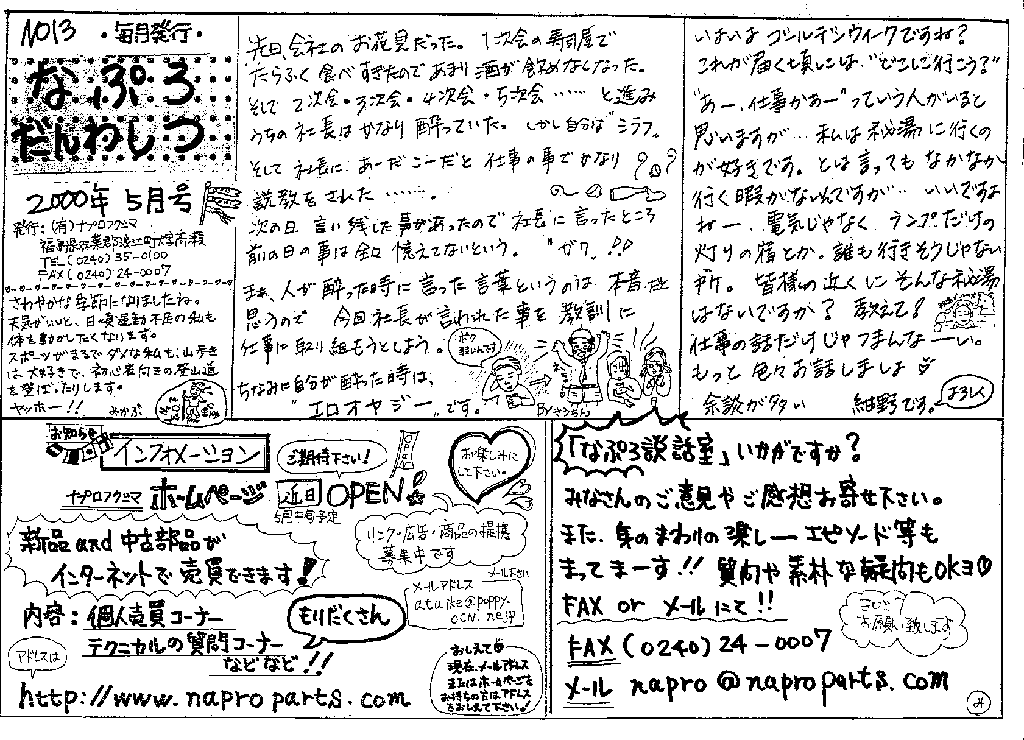 NO13 ・毎月発行・
なぷろ
だんわしつ
2000年 5月号
発行:(有)ナプロフクシマ
福島県双葉郡浪江町大字高瀬
TEL (0240) 35-0100
FAX (0240) 24-0007
さわやかな季節になりましたね。
天気がいいと、日頃運動不足の私も
体を動かしたくなります。
スポーツがまるでダメな私も、山歩き
は大好きで、初心者向きの登山道
を登ったりします。
ヤッホー!! みかぷ
先日、会社のお花見だった。1次会の寿司屋で
たらふく食べすぎたのであまり酒が飲めなくなった。
そして2次会・3次会・4次会・5次会……と進み
うちの社長はかなり酔っていた。しかし自分は"シラフ"。
そして社長に、あーだこーだと仕事の事でかなり
説教をされた……。
次の日、言い残した事があったので社長に言ったところ
前の日の事は全く憶えてないという。"ガク"!!
まぁ、人が酔った時に言った言葉というのは、本音だと
思うので 今回社長が言われた事を教訓に
仕事に取り組もうとしよう。
ちなみに自分が酔った時は、
"エロオヤジー"です。
いよいよゴールデンウィークですね?
これが届く頃には、"どこに行こう?"
"あー、仕事かあー"っていう人がいると
思いますが… 私は秘湯に行くの
が好きです。とは言ってもなかなか
行く暇がないんですが… いいですよ
ねー、電気じゃなくランプだけの
灯りの宿とか。誰も行きそうじゃない
所。皆様の近くにそんな秘湯
はないですか? 教えて!
仕事の話だけじゃつまんなーい。
もっと色々お話しましょ
余談が多い 紺野です。
よろしく
お知らせ
インフォメーション
ご期待下さい!
お楽しみに
して下さい。
ナプロフクシマ ホームページ 近日 OPEN
5月中旬予定
リンク・広告・商品の提携
募集中です
新品and中古部品が
インターネットで売買できます!
メール下さい
メールアドレス
atuike@poppy.
ocn.ne.jp
内容:個人売買コーナー
テクニカルの質問コーナー
などなど!!
もりだくさん
アドレスは
http://www.naproparts.com
おしえて
現在、メールアドレス
またはホームページを
お持ちの方はアドレス
をおしえて下さい!
「なぷろ談話室」いかがですか?
みなさんのご意見やご感想お寄せ下さい。
また、身のまわりの楽しーエピソード等も
まってまーす!! 質問や素朴な疑問もOKヨ
FAX or メールにて!!
FAX (0240) 24-0007
メール napro@naproparts.com
お願い致します